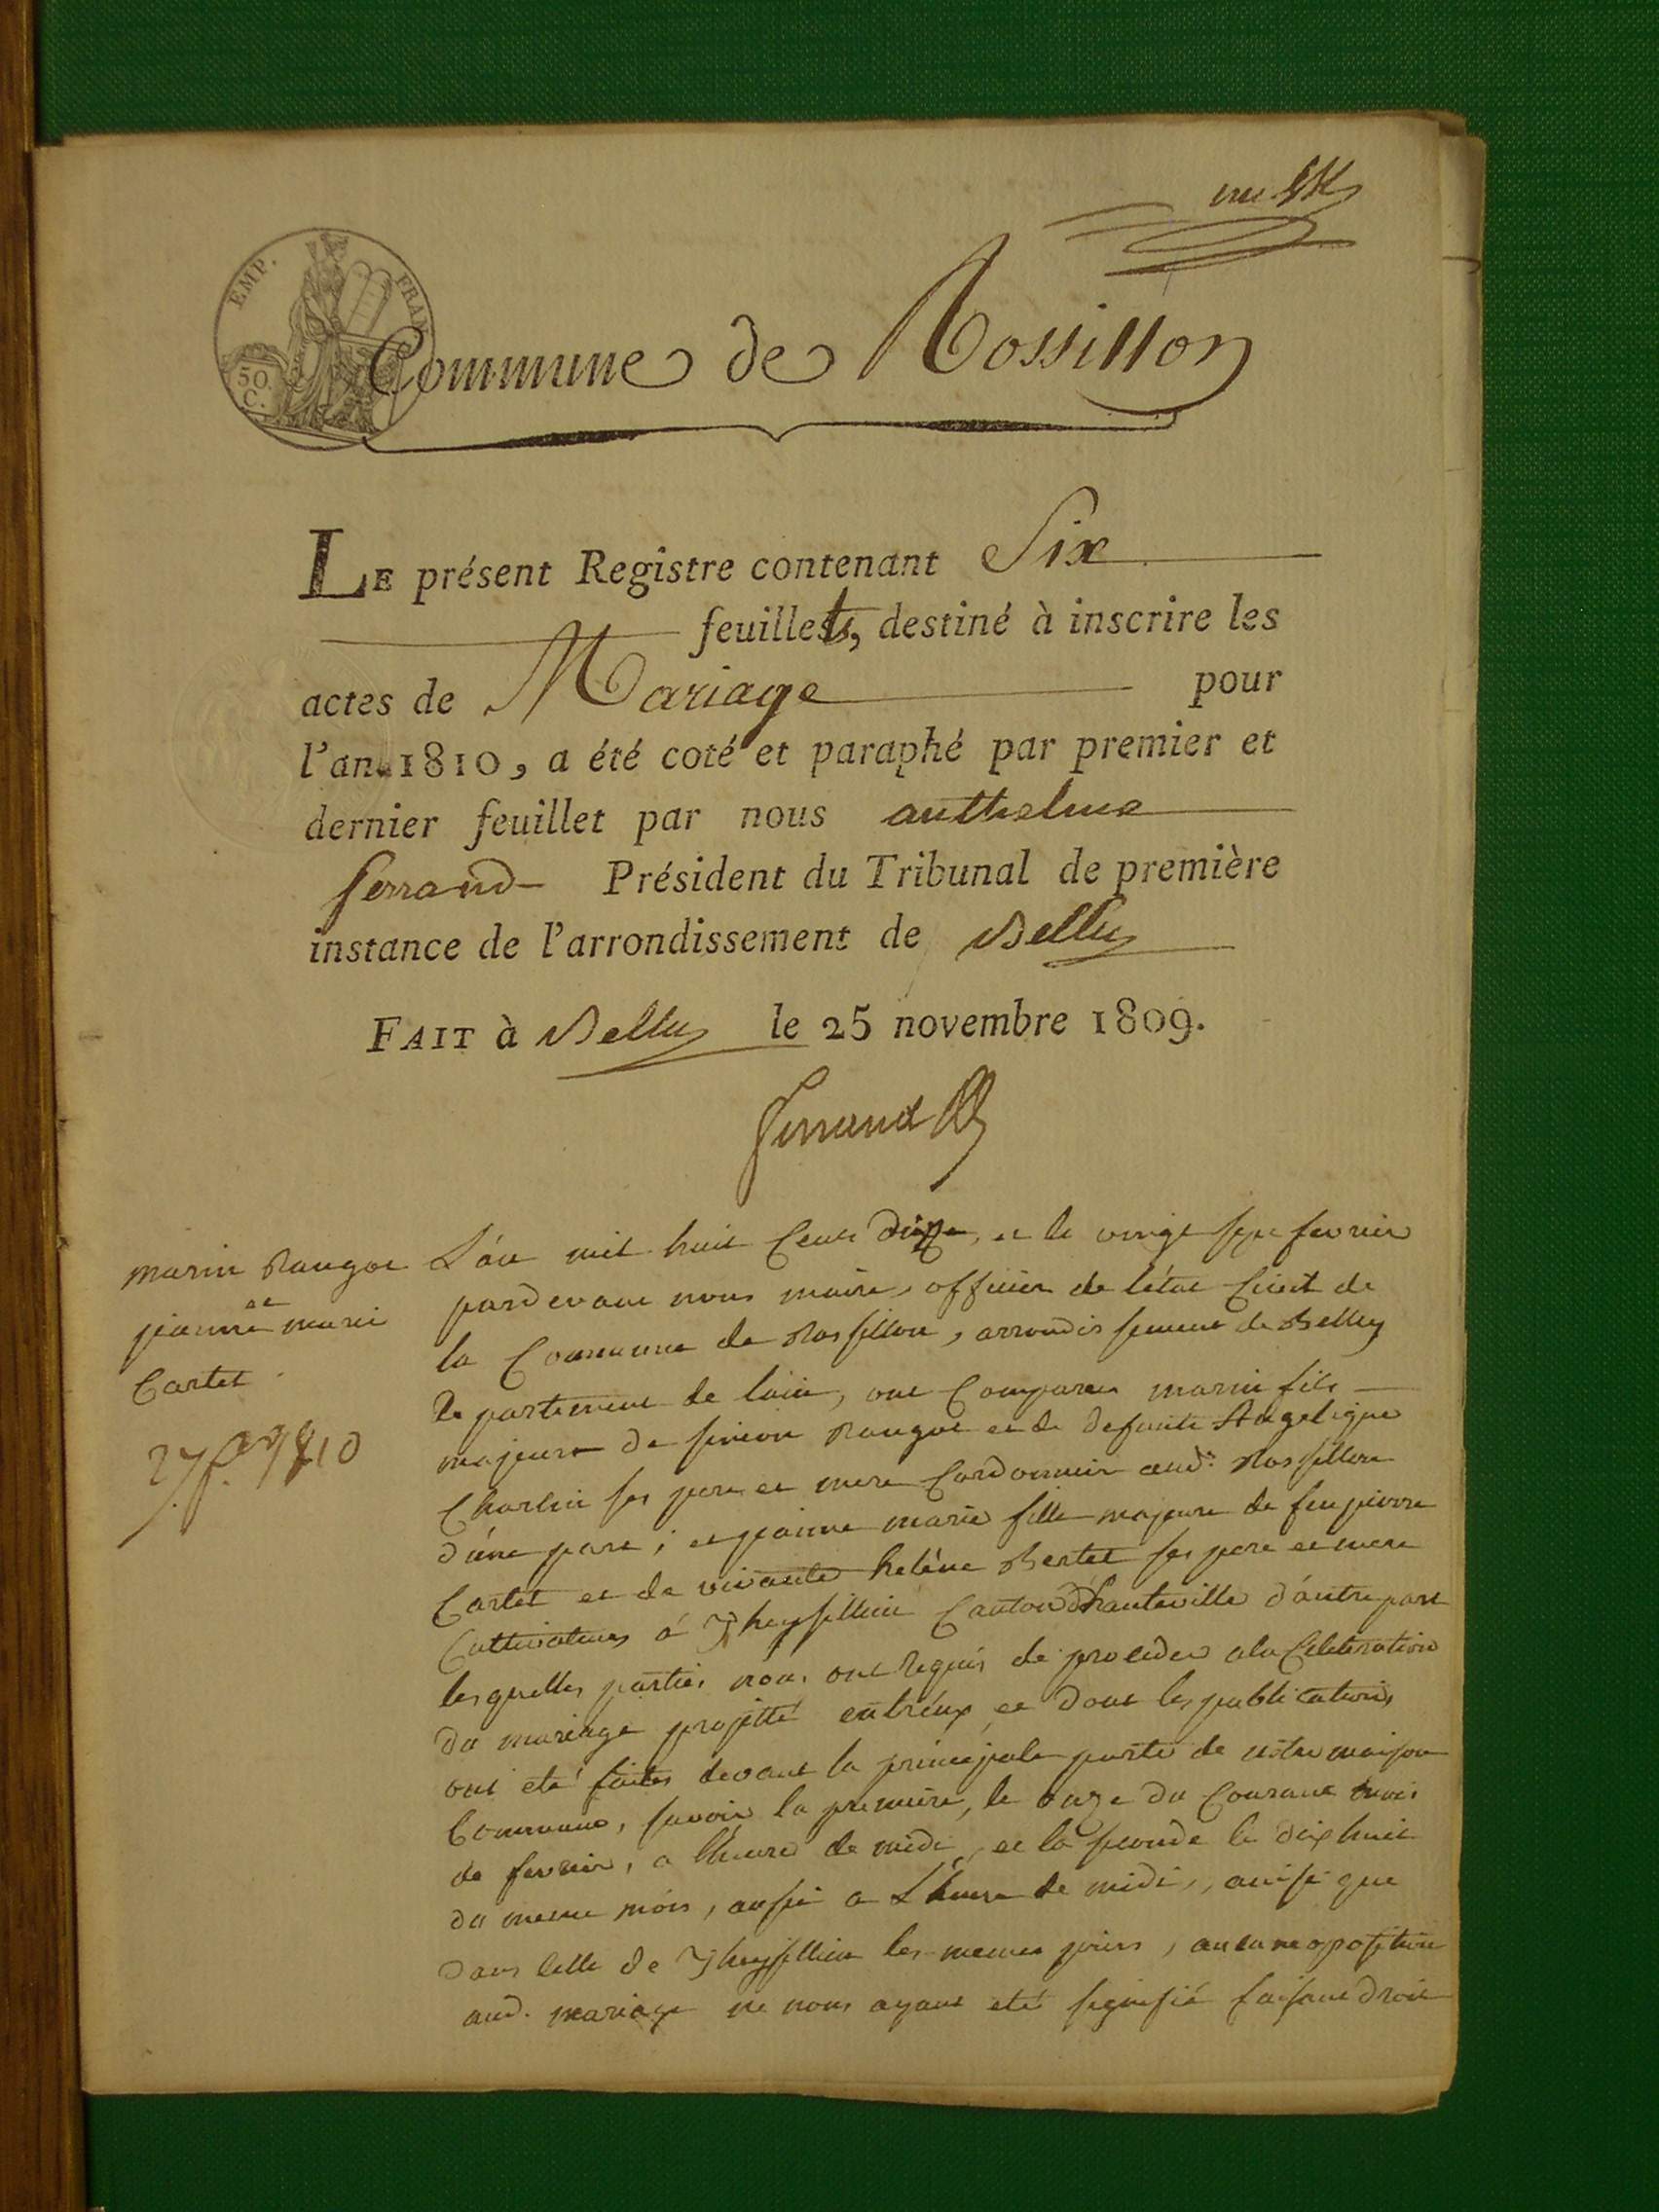 EMP. FRAN.
50. C.
Commune de Rossillon
LE présent Registre contenant Six
feuillets, destiné à inscrire les
actes de Mariage pour
l'an 1810, a été coté et paraphé par premier et
dernier feuillet par nous anthelme
ferrand Président du Tribunal de première
instance de l'arrondissement de Belley
FAIT à Belley le 25 novembre 1809.
Ferrand
marin Raugot
et
jeanne marie
Cartet
27 f.er 1810
L'an mil huit Cents dix, et le vingt sept fevrier
pardevant nous maire, officier de l'état Civil de
la Commune de Rossillon, arrondissement de Belley
departement de lain, ont Comparu marin fils
majeur de simeon Raugot et de defunte Angelique
Charlin ses pere et mere Cordonnier aud. Rossillon
d'une part; et jeanne marie fille majeure de feu pierre
Cartet et de vivante heléne Bertet ses pere et mere
Cultivateurs á Thezillieu Canton d'hauteville d'autre part
lesquelles parties nous ont requis de proceder a la Celebration
du mariage projetté entr'eux et dont les publications
ont eté faites devant la principale porte de notre maison
Commune, savoir la premiere, le onze du Courant mois
de fevrier, a l'heure de midi, et la seconde le dix huit
du meme mois, aussi a L'heure de midi, ainsi que
dans celle de Thezillieu les memes jours, aucune oposition
aud. mariage ne nous ayant eté signifié faisant droit